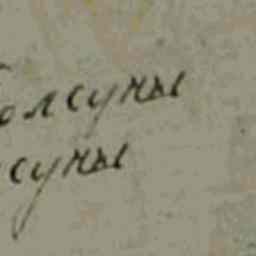 Болсуны
суны